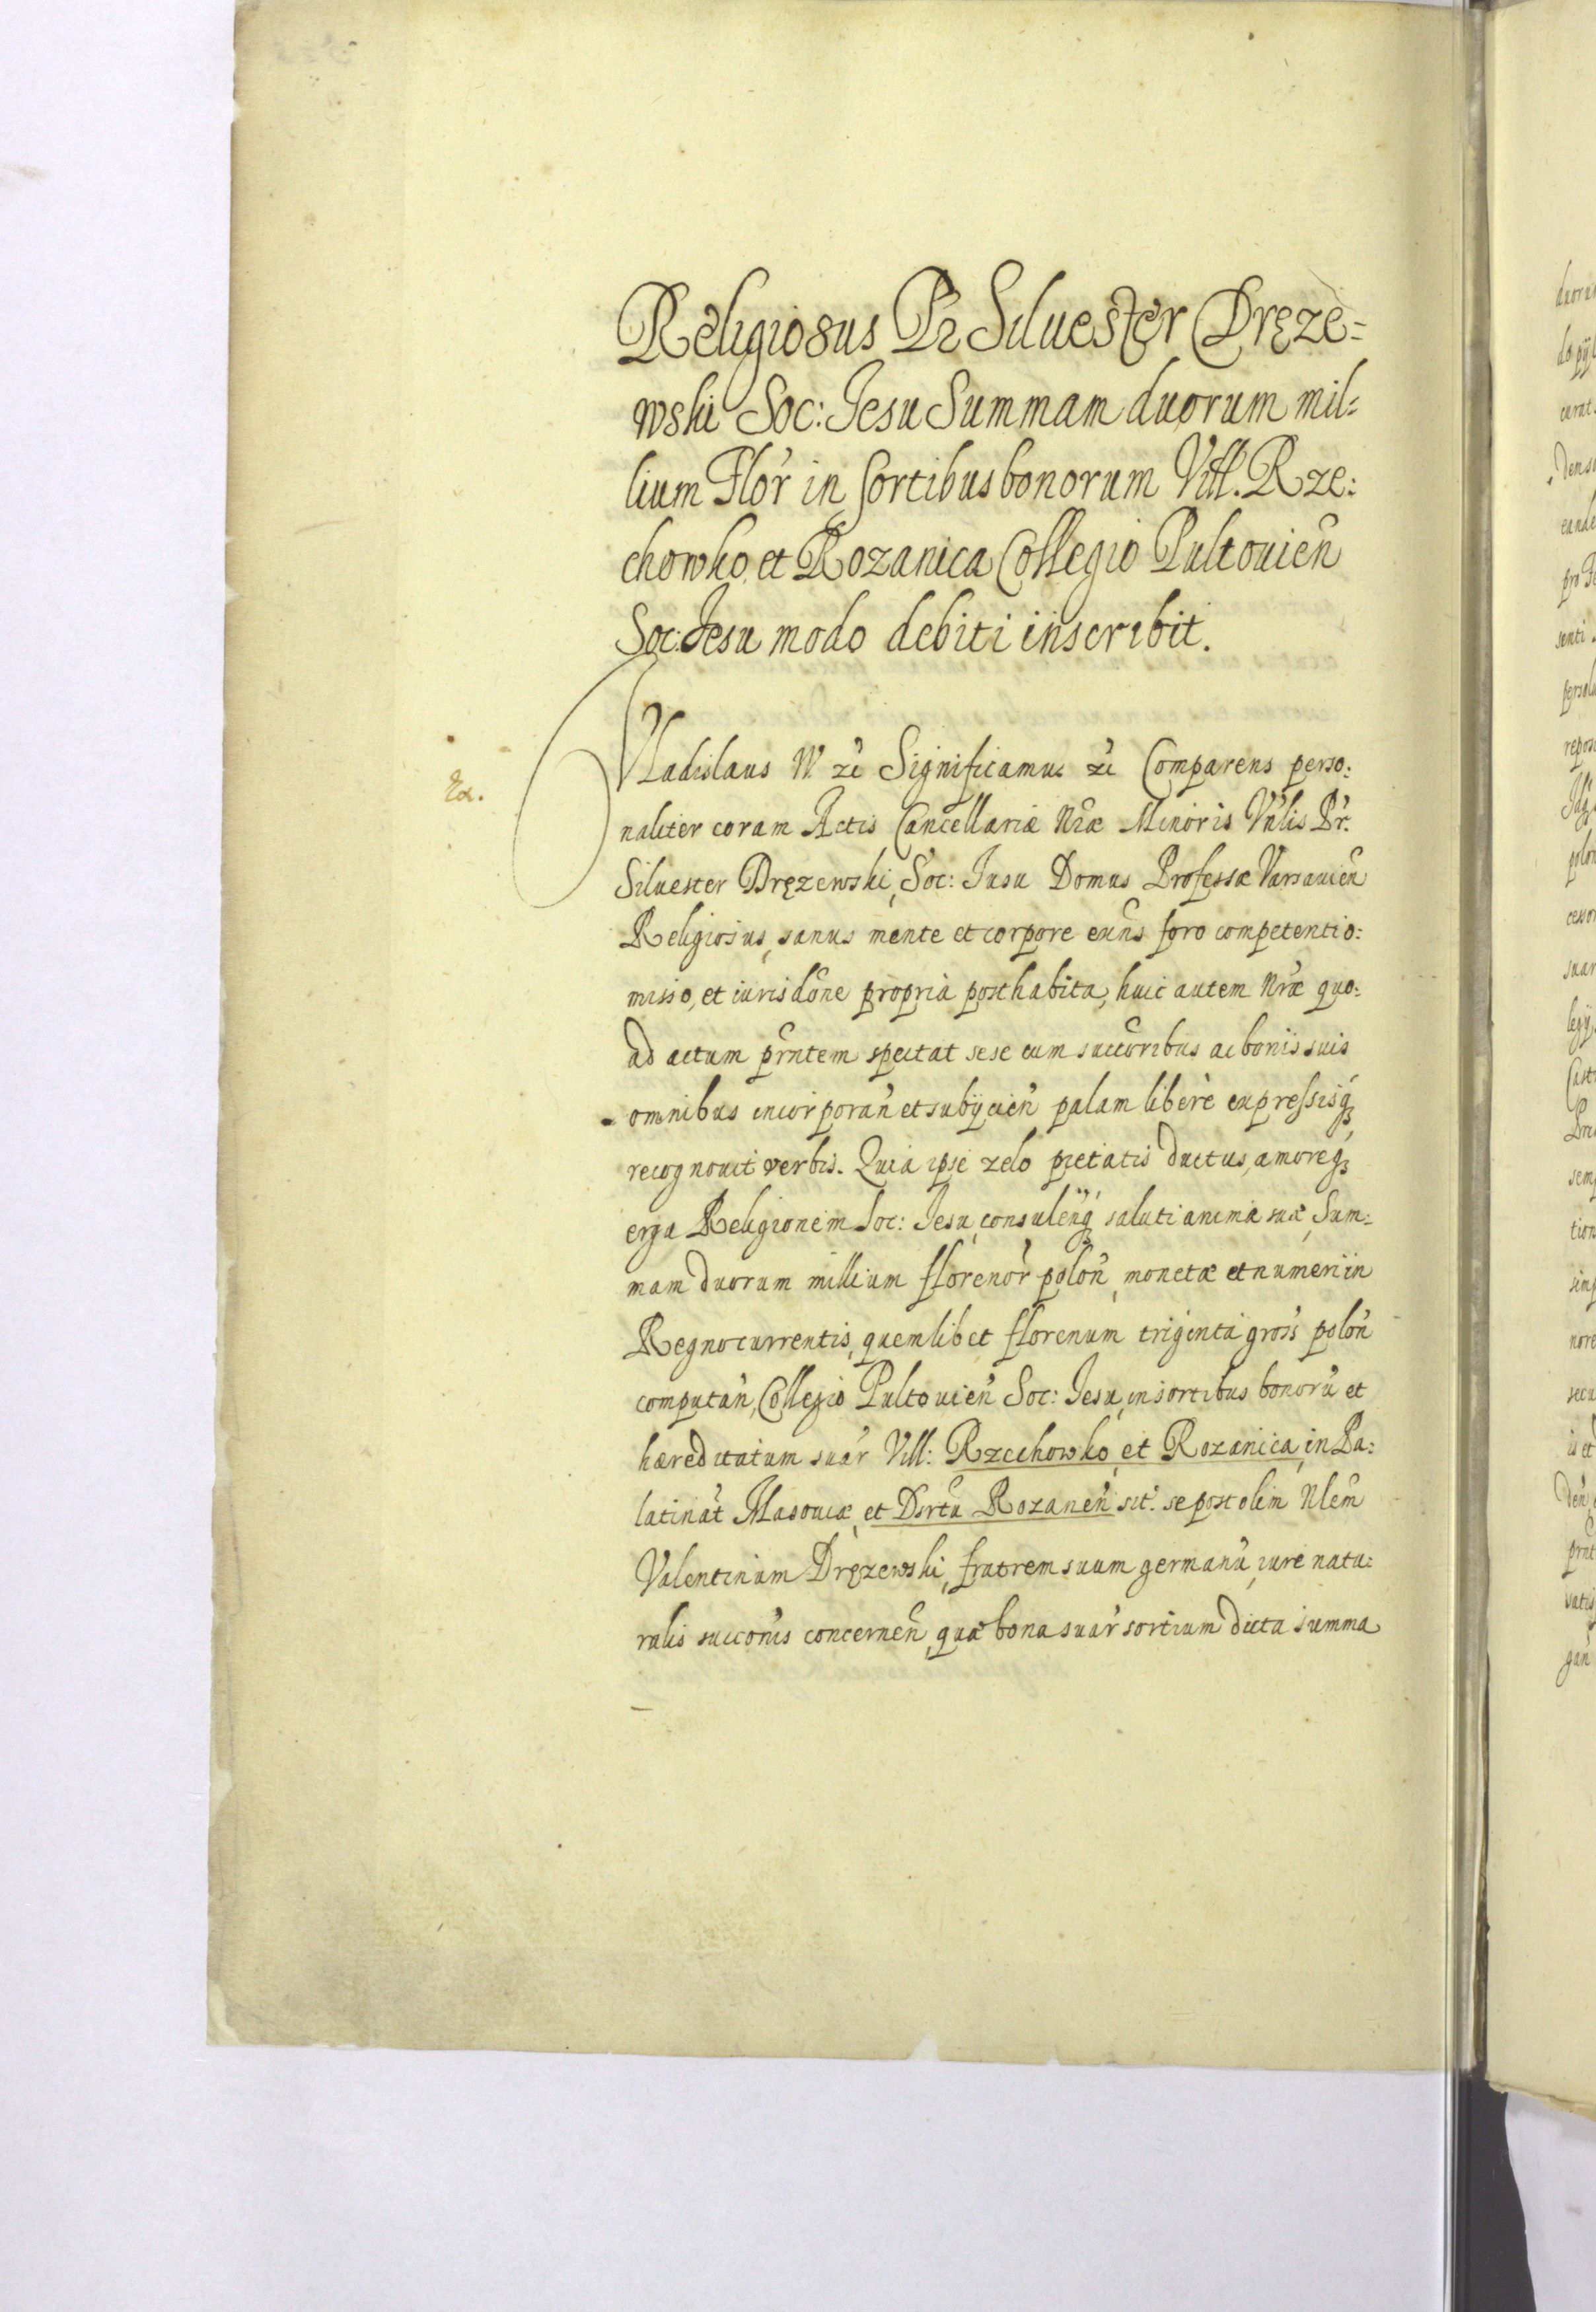 Religiosus Pr Siluester Dręze=
wski Soc: Jesu Summam duorum mil=
lium Flor in sortibus bonorum Vill. Rze:
chowko et Rozanica Collegio Pultouien
Soc: Jesu modo debiti inscribit.
Vladislaus IV zc Significamus zc Comparens perso:
naliter coram Actis Cancellariæ Nræ Minoris Vnlis Pr.
Siluester Dręzewski, Soc: Jesu Domus Professæ Varsauien
Religiosus, sanus mente et corpore exns foro competenti o:
misso, et iurisdone propria posthabita, huic autem Nræ quo:
ad actum prntem spectat sese cum succoribus ac bonis suis
omnibus incorporan et subijcien palam libere expressisq
recognouit verbis. Quia ipse zelo pietatis ductus, amoreq
erga Religionem Soc: Jesu, consulenq saluti animæ suæ, Sum:
mam duorum millium florenor polon, monetæ et numeri in
Regno currentis, quemlibet florenum triginta gross polon
computan, Collegio Pultouien Soc: Jesu, in sortibus bonoru et
hæreditatum suar Vill: Rzechowko, et Rozanica, in Pa:
latinat Masouiæ, et Dsrtu Rozanen sit. se post olim Nlem
Valentinum Dręzewski, fratrem suum germanu, iure natu:
ralis succonis concernen, quæ bona suar sortium dicta summa